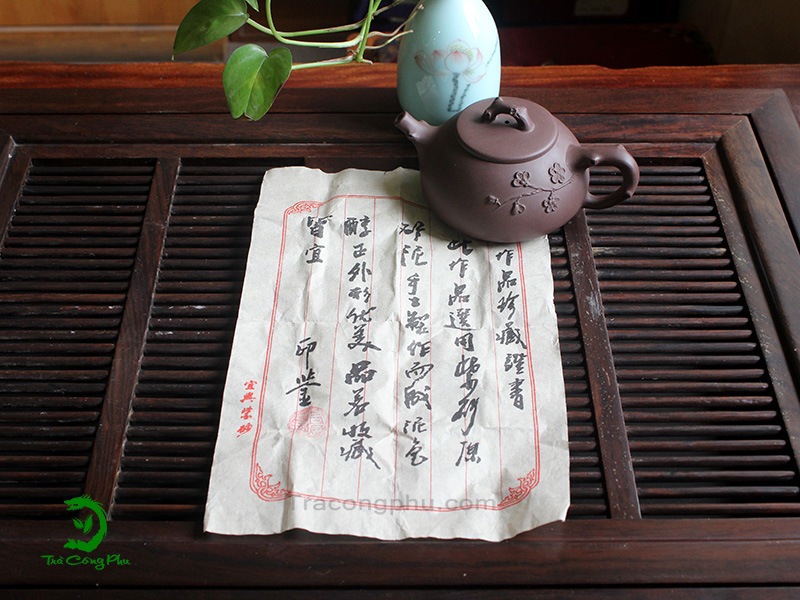 作品珍藏證書
此作品選用紫砂原
矿泥手工製作而成泥色
醇正外形优美品茗收藏
皆宜
印鉴
宜興紫砂
Tracongphu.com
Trà Công Phu